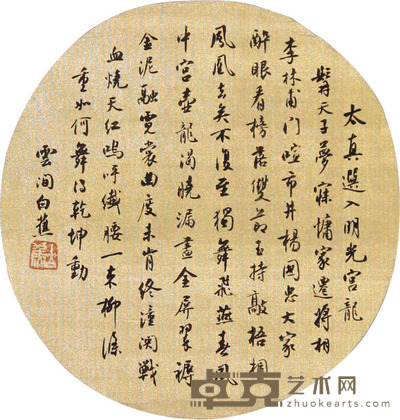 太真選入明光宮龍
髯天子夢寐慵家遷將相
李林甫門喧市井楊國忠大家
醉眼看雙玉持敲梧桐
鳳凰去矣不復至獨舞飛燕春風
中宮壺龍渴曉漏盡金屏翠褥
金泥融霓裳曲度未肯終潼関戰
血燒天紅嗚呼纖腰一束柳條
重如何舞得乾坤動
雲間白蕉
艺术网
www.zhuokearts.com